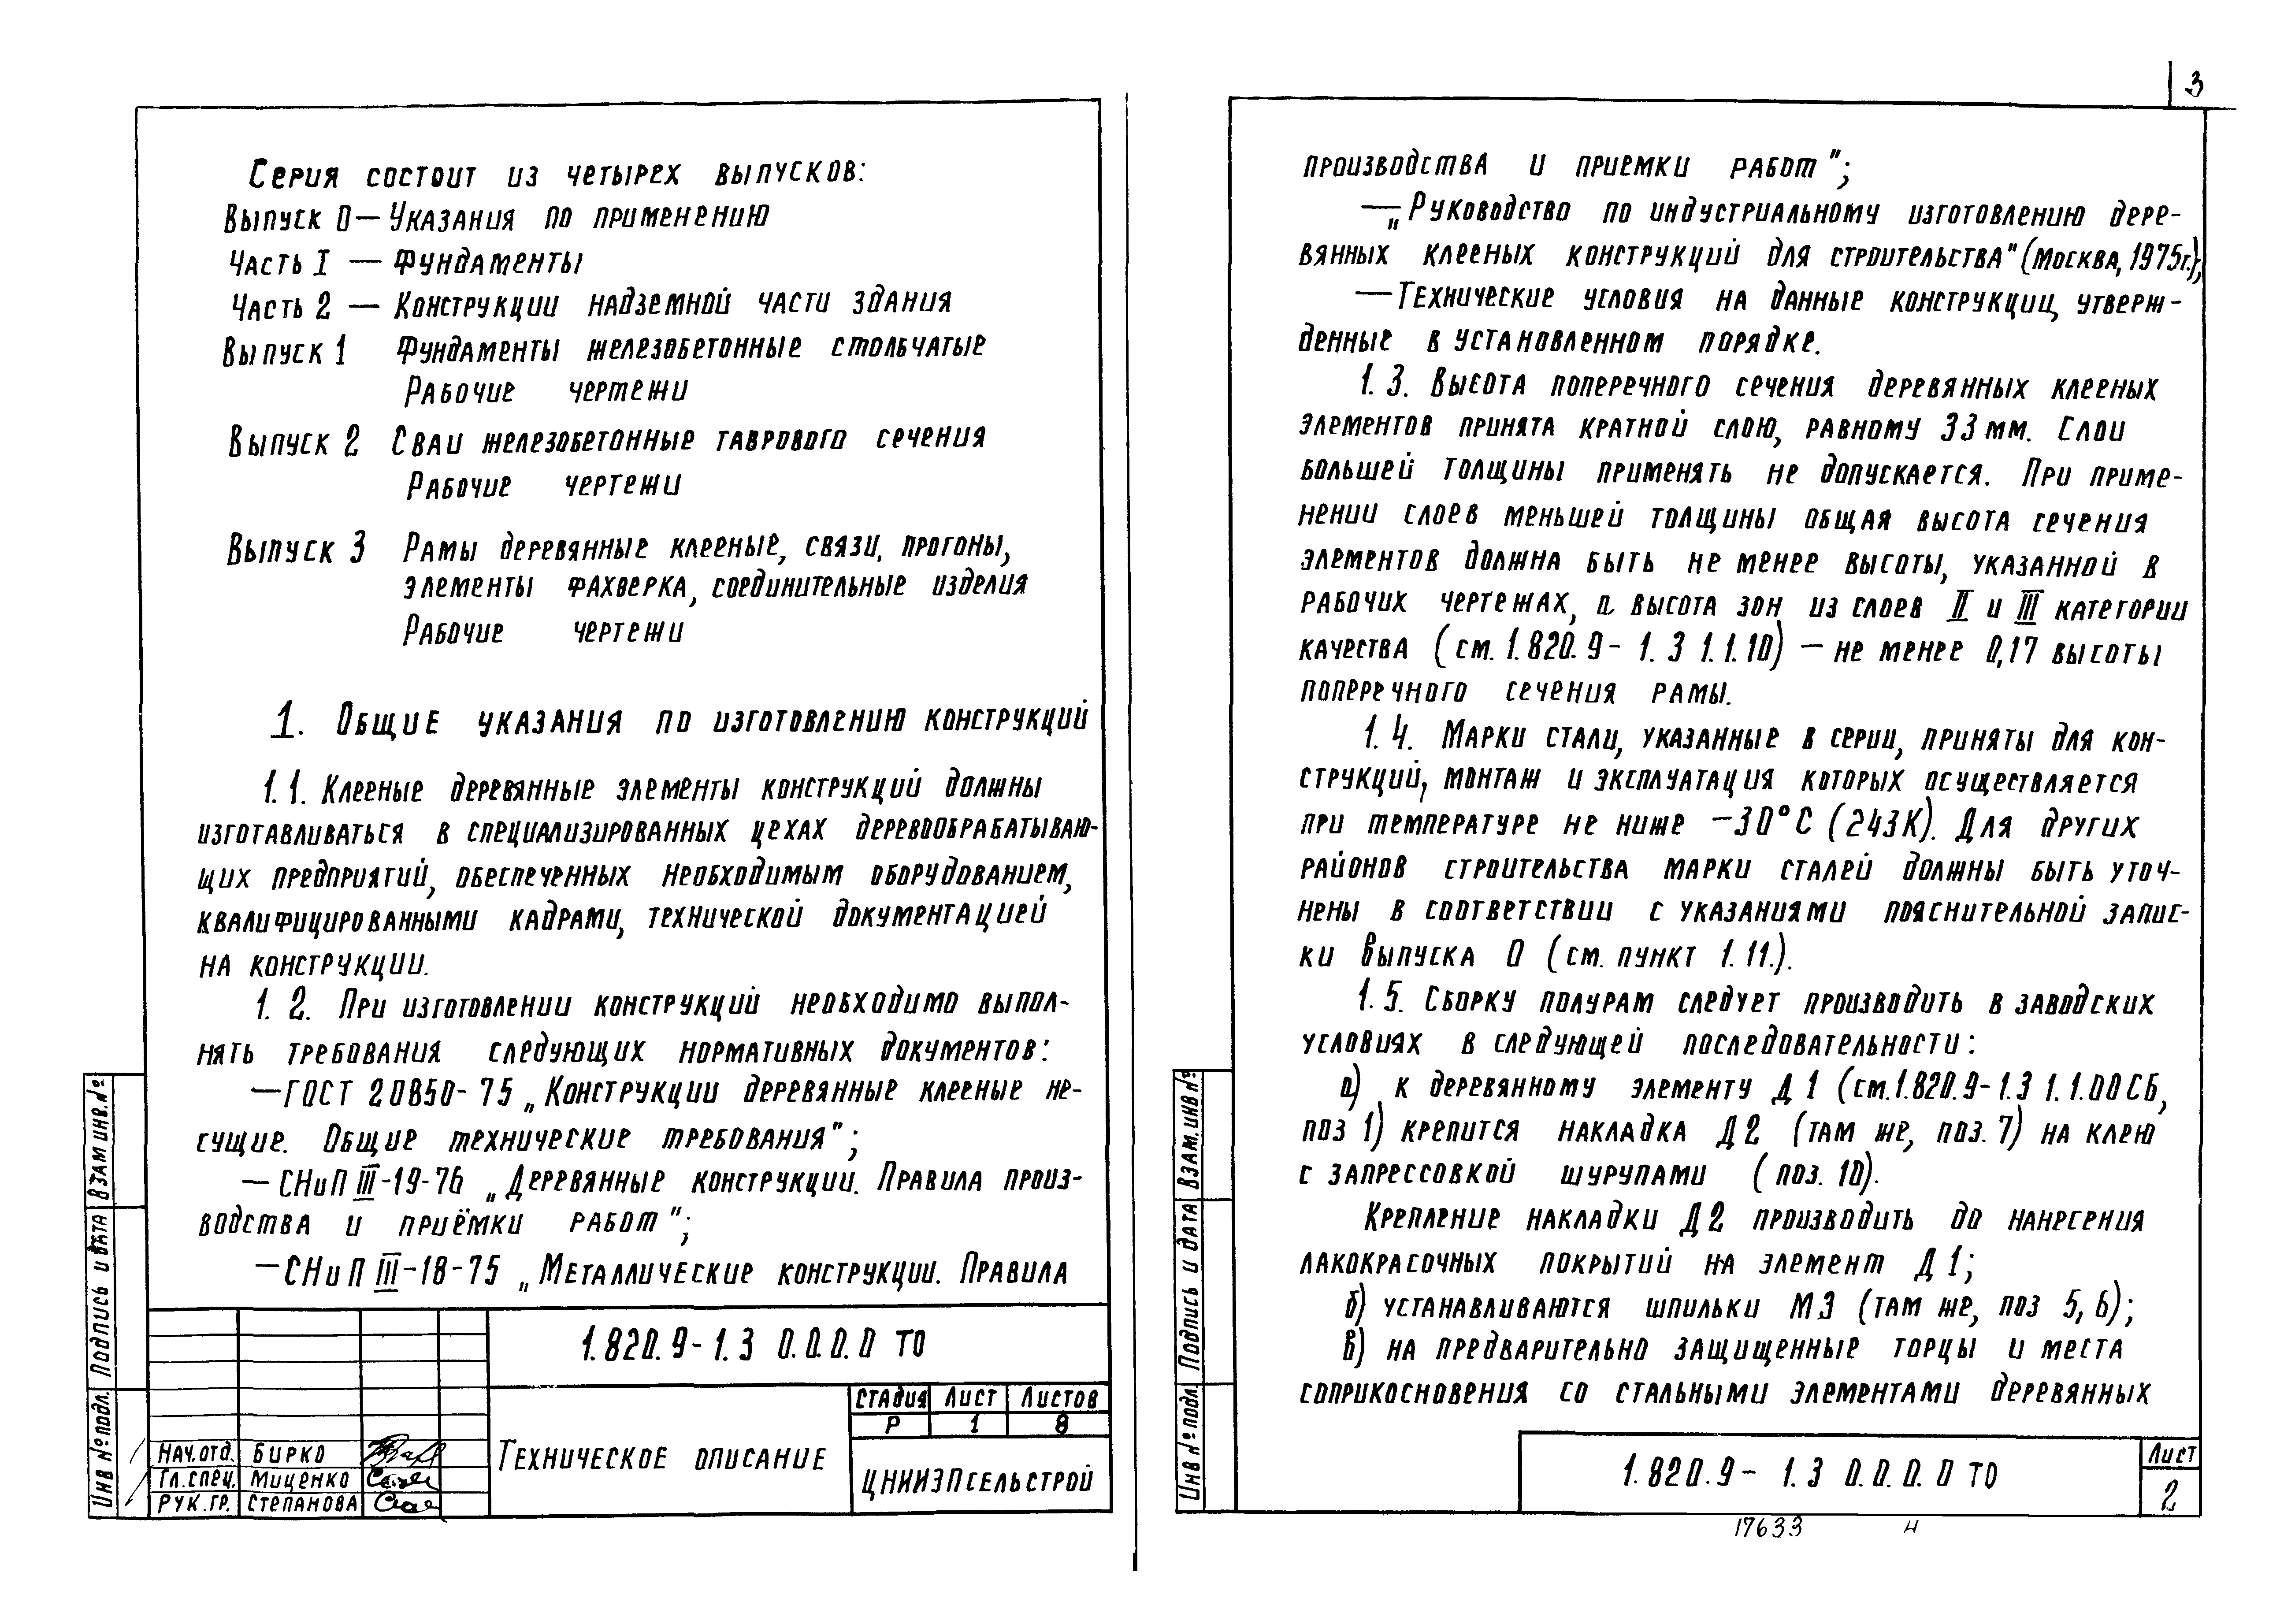 Серия состоит из четырех выпусков:
Выпуск 0 — Указания по применению
Часть I — Фундаменты
Часть 2 — Конструкции надземной части здания
Выпуск 1 Фундаменты железобетонные столбчатые
Рабочие чертежи
Выпуск 2 Сваи железобетонные таврового сечения
Рабочие чертежи
Выпуск 3 Рамы деревянные клееные, связи, прогоны,
элементы фахверка, соединительные изделия
Рабочие чертежи
1. Общие указания по изготовлению конструкций
1.1. Клееные деревянные элементы конструкций должны
изготавливаться в специализированных цехах деревообрабатываю-
щих предприятий, обеспеченных необходимым оборудованием,
квалифицированными кадрами, технической документацией
на конструкции.
1.2. При изготовлении конструкций необходимо выпол-
нять требования следующих нормативных документов:
— ГОСТ 20850-75 „Конструкции деревянные клееные не-
сущие. Общие технические требования";
— СНиП III-19-76 „Деревянные конструкции. Правила произ-
водства и приёмки работ";
— СНиП III-18-75 „Металлические конструкции. Правила
1.820.9-1.3 0.0.0.0 ТО
Стадия Лист Листов
Р 1 8
Техническое описание
ЦНИИЭПсельстрой
Нач.отд. Бирко
Гл.спец. Миценко
Рук.гр. Степанова
Взам инв.№
Подпись и дата
Инв № подл.
3
производства и приемки работ";
— „Руководство по индустриальному изготовлению дере-
вянных клееных конструкций для строительства" (Москва, 1975г.),
— Технические условия на данные конструкции, утверж-
денные в установленном порядке.
1.3. Высота поперечного сечения деревянных клееных
элементов принята кратной слою, равному 33 мм. Слои
большей толщины применять не допускается. При приме-
нении слоев меньшей толщины общая высота сечения
элементов должна быть не менее высоты, указанной в
рабочих чертежах, а высота зон из слоев II и III категории
качества (см. 1.820.9-1.3 1.1.10) — не менее 0,17 высоты
поперечного сечения рамы.
1.4. Марки стали, указанные в серии, приняты для кон-
струкций, монтаж и эксплуатация которых осуществляется
при температуре не ниже −30°С (243К). Для других
районов строительства марки сталей должны быть уточ-
нены в соответствии с указаниями пояснительной запис-
ки выпуска 0 (см. пункт 1.11.).
1.5. Сборку полурам следует производить в заводских
условиях в следующей последовательности:
а) к деревянному элементу Д1 (см.1.820.9-1.3 1.1.00СБ,
поз 1) крепится накладка Д2 (там же, поз. 7) на клею
с запрессовкой шурупами (поз. 10).
Крепление накладки Д2 производить до нанесения
лакокрасочных покрытий на элемент Д1;
б) устанавливаются шпильки МЭ (там же, поз 5, 6);
в) на предварительно защищенные торцы и места
соприкосновения со стальными элементами деревянных
1.820.9-1.3 0.0.0.0 ТО
Лист
2
17633 4
Взам. инв №
Подпись и дата
Инв № подл